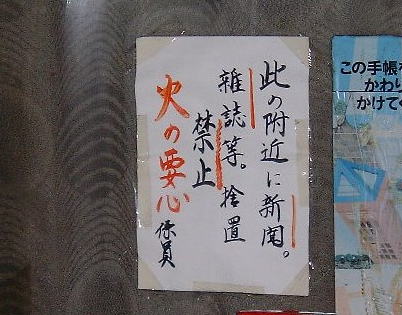 此の附近に新聞。
雑誌等。捨置
禁止
火の要心
係員
この手帳を
かわり
かけてく